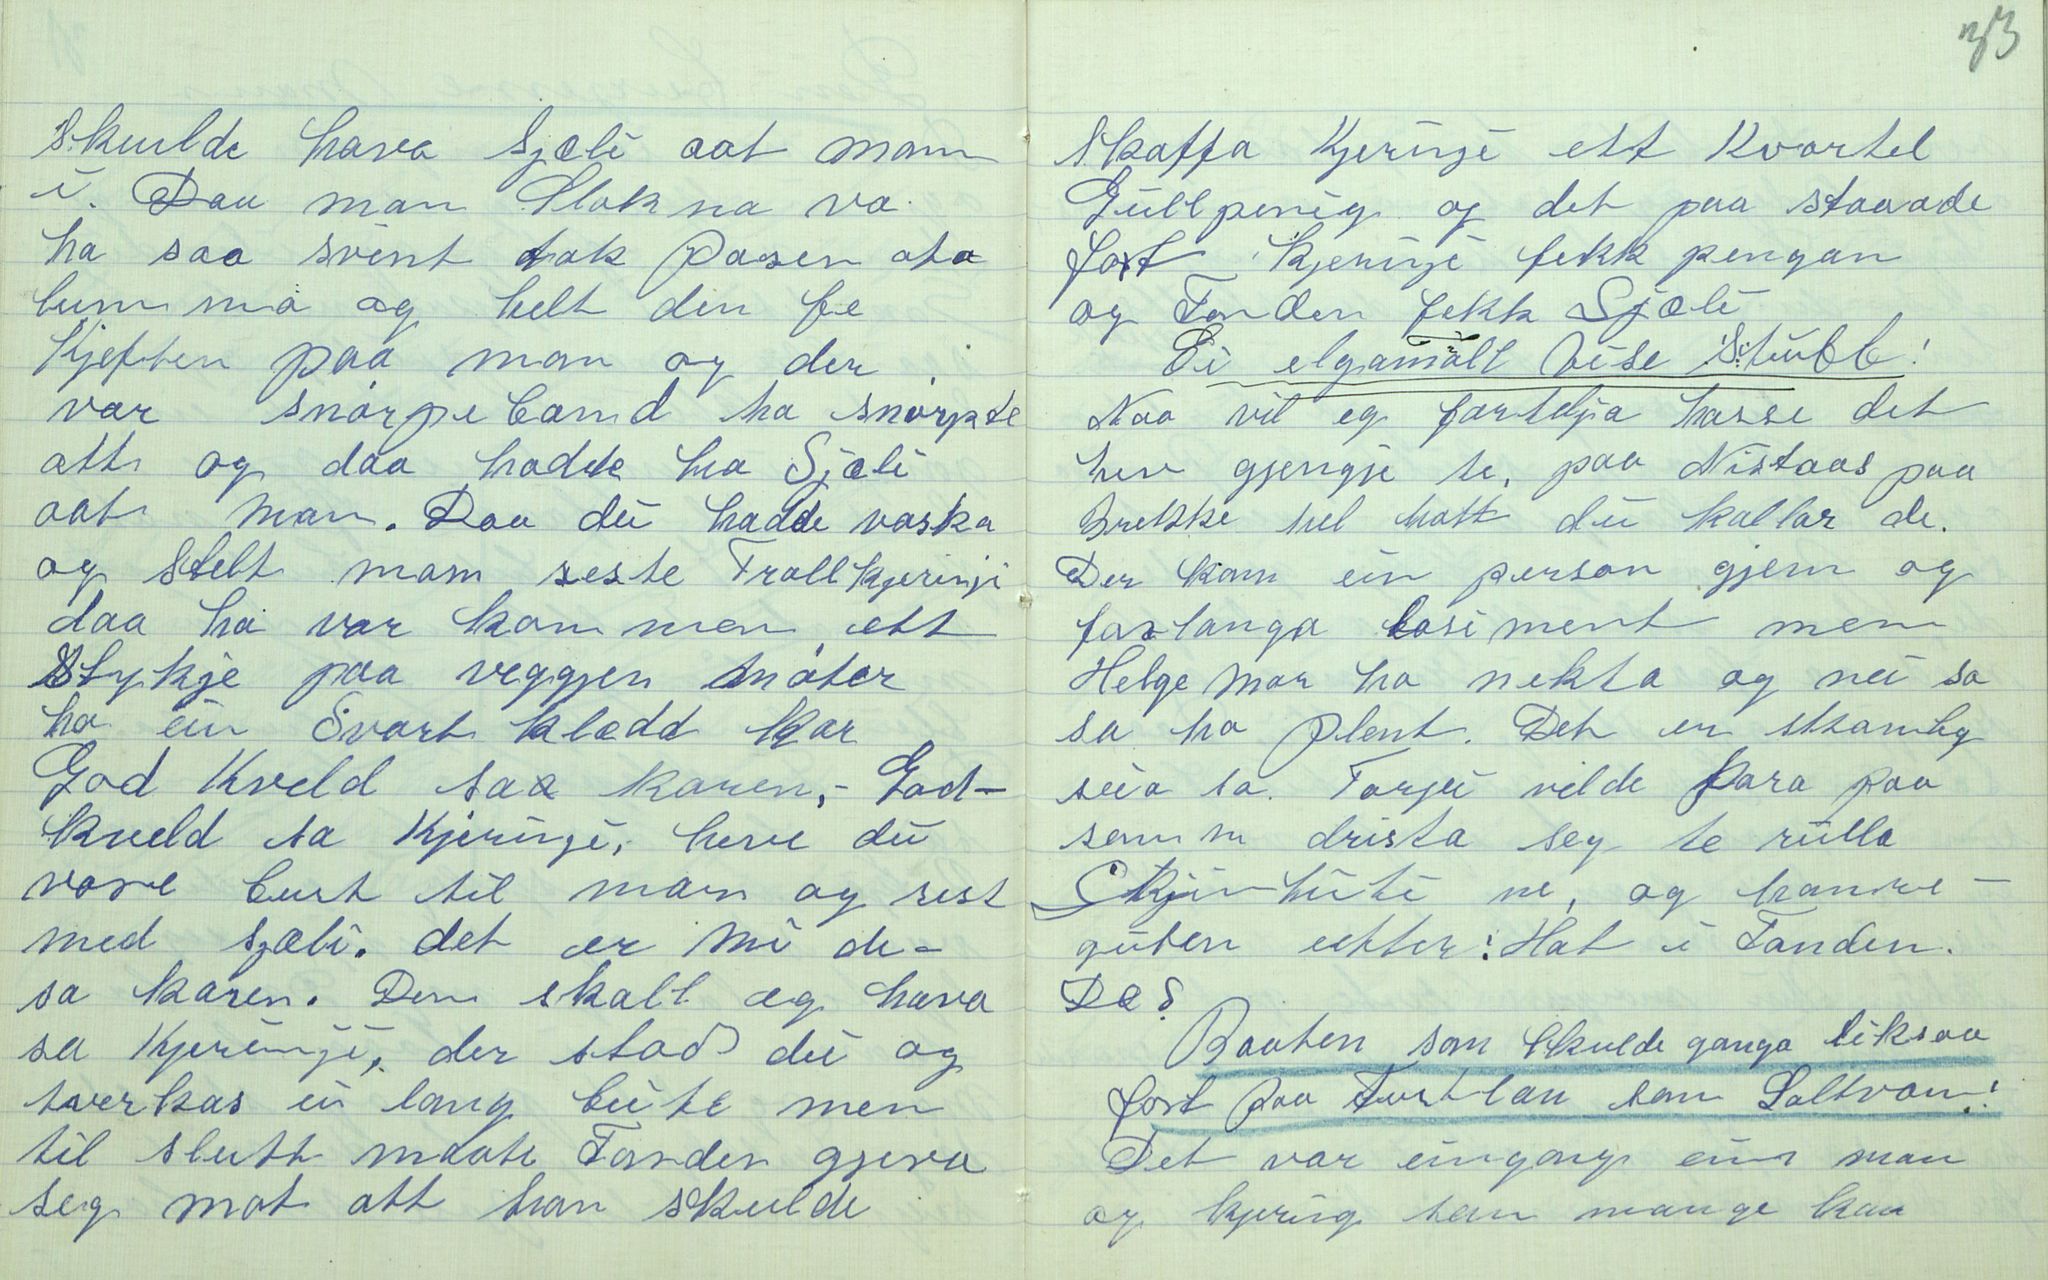 Skulde hava Sjæli aat mann
i. Daa man Slokna va
ha saa svint tok Posen ata
lumma og helt den fe
Kjeften paa man og der
var snórpeband ha snorpte
att og daa hadde ha Sjæli
aat man. Daa dei hadde vaska
og stelt mann reste Trollkjerinji
daa ha var kommen ett
Stykje paa veggjen móter
ha ein Svart klædd Kar
God Kveld saa karen,- God-
kveld sa Kjeringi, heve du
vore burt til man og rest
med sjæli. det er mi de-
sa karen. Den skall æg hava
sa Kjeringi, der stod dei og
tverkas ei lang beite men
til slutt maate Fanden gjeva
seg mot att han skulde
33
Skaffa Kjeringi ett Kvartel
Gullpenig og det paa staaade
fort Kjeringi fekk pengan
og Fanden fekk Sjæli
Ei elgamall Vise Stubb!
Naa vil eg fortelja hasse det
hev gjengje te, paa Nistaas paa
Brekke hel hatt du kallar de.
Der kom ein person gjem og
forlanga losiment men
Helge mor ha nekta og nei sa
sa ha plent. Det er skamleg
seia sa. Torjei vilde fara paa
somm drista seg te rulla
Skjinhiti ne, og hanre-
guten etter! Hat i Fanden.
DaS.
Baaten som Skulde ganga liksaa
fort paa Turtlan som Saltvan!
Det var eingang ein man
og kjering som mange kan